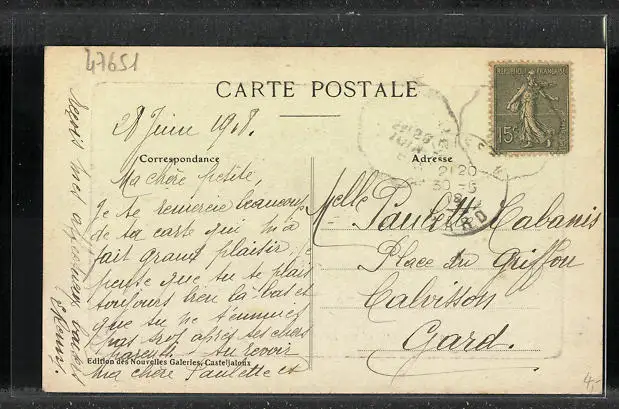 47651
CARTE POSTALE
REPUBLIQUE FRANÇAISE
15c
28 Juin 1908.
Correspondance
Adresse
Ma chère petite,
Je te remercie beaucoup
de ta carte qui m'a
fait grand plaisir, je
pense que tu te plais
toujours bien là bas et
que tu ne t'ennuies
pas trop après tes chers
parents. Au revoir
ma chère Paulette et
reçois mes affectueux baisers
Melle Paulette Cabanis
Place du Griffon
Calvisson
Gard.
21 20
30 -6
08
GARD
Edition des Nouvelles Galeries, Casteljaloux
4,-